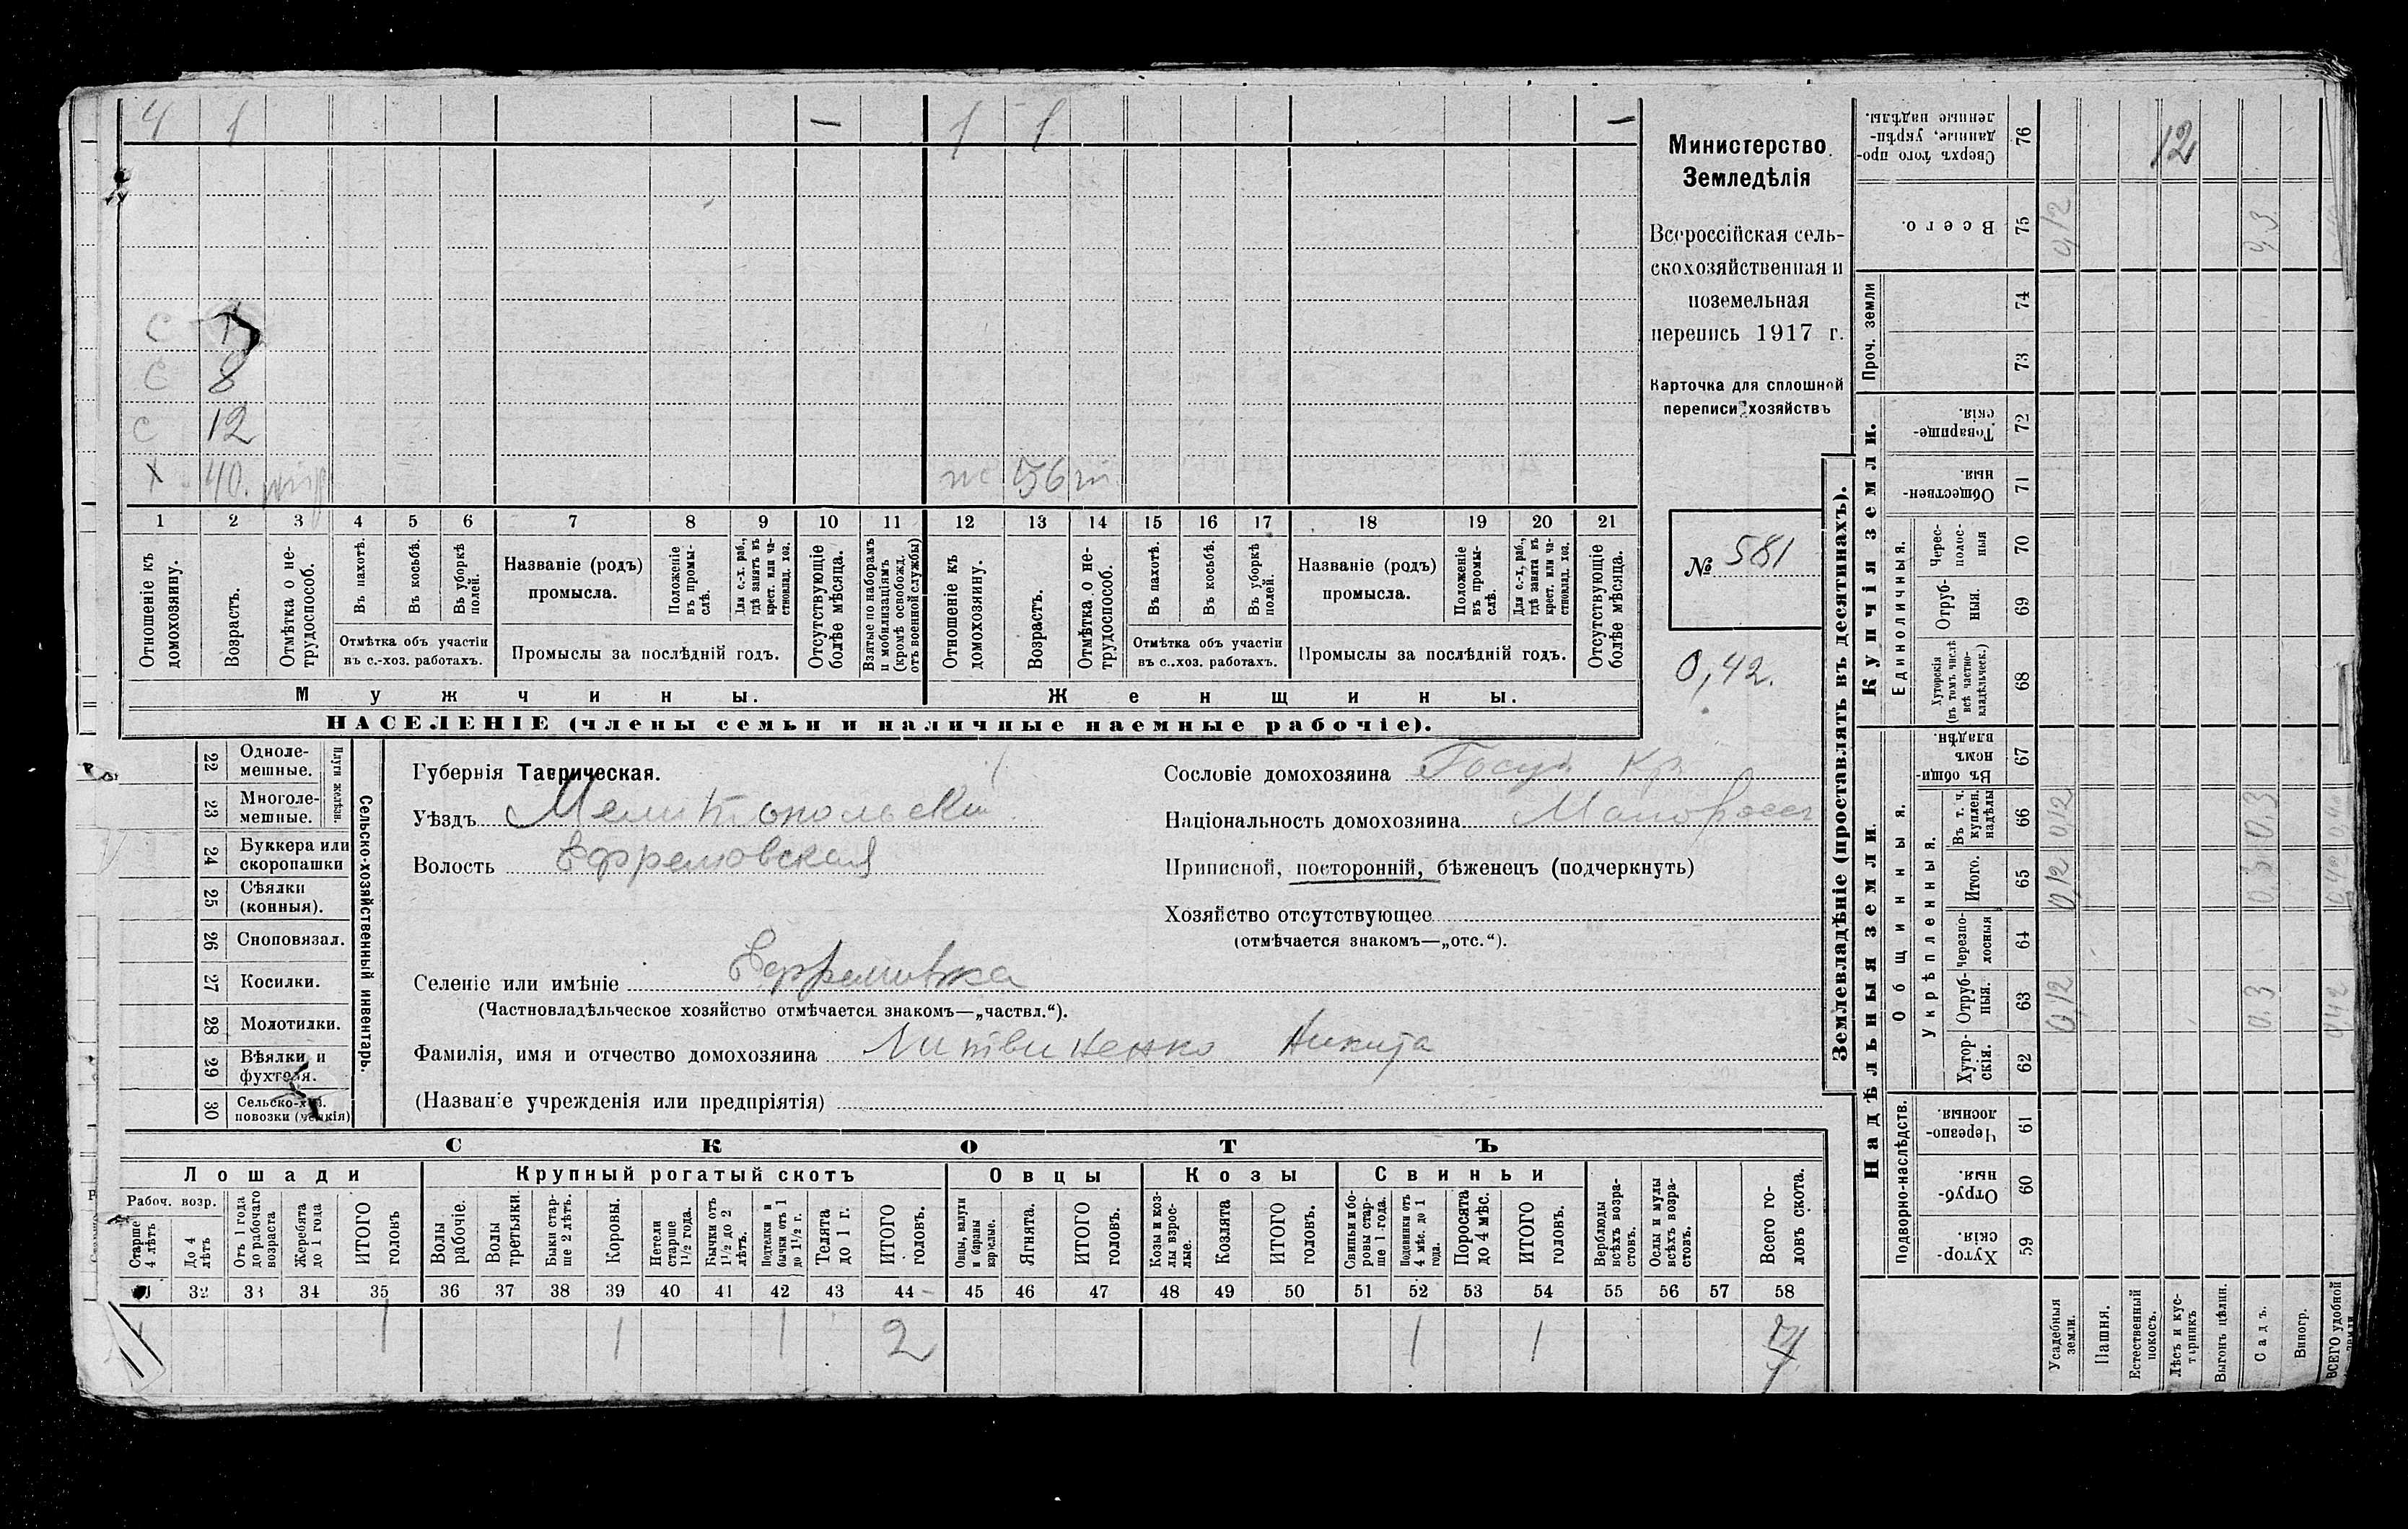 4 1 — 1 1 —
С
С 8
С 12
Х 40. ж 36
1 2 3 4 5 6 7 8 9 10 11 12 13 14 15 16 17 18 19 20 21
Отношеніе къ домохозяину.
Возрастъ.
Отмѣтка о не-трудоспособ.
Въ пахотѣ.
Въ косьбѣ.
Въ уборкѣ полей.
Отмѣтка объ участіи
въ с.-хоз. работахъ.
Названіе (родъ)
промысла.
Положеніе въ промы-слѣ.
Для с.-х. раб., гдѣ занятъ въ крест. или ча-стновлад. хоз.
Промыслы за послѣдній годъ.
Отсутствующіе болѣе мѣсяца.
Взятые по наборамъ и мобилизаціямъ (кромѣ освобожд. отъ военной службы)
Отношеніе къ домохозяину.
Возрастъ.
Отмѣтка о не-трудоспособ.
Въ пахотѣ.
Въ косьбѣ.
Въ уборкѣ полей.
Отмѣтка объ участіи
въ с.-хоз. работахъ.
Названіе (родъ)
промысла.
Положеніе въ промы-слѣ.
Для с.-х. раб., гдѣ занята въ крест. или ча-стновлад. хоз.
Промыслы за послѣдній годъ.
Отсутствующіе болѣе мѣсяца.
Мужчины. Женщины.
НАСЕЛЕНІЕ (члены семьи и наличные наемные рабочіе).
Министерство
Земледѣлія
Всероссійская сель-
скохозяйственная и
поземельная
перепись 1917 г.
Карточка для сплошной
переписи хозяйствъ
№ 581
0,42.
22 Одноле-мешные.
23 Многоле-мешные.
Плуги желѣзн.
24 Буккера или скоропашки
25 Сѣялки (конныя).
26 Сноповязал.
27 Косилки.
28 Молотилки.
29 Вѣялки и фухтеля.
30 Сельско-хоз. повозки
Сельско-хозяйственный инвентарь.
Губернія Таврическая.
Уѣздъ Мелитопольскій
Волость Ефремовская
Селеніе или имѣніе Ефремовка
(Частновладѣльческое хозяйство отмѣчается знакомъ—„частвл.“).
Фамилія, имя и отчество домохозяина Литвиненко Никита
(Названіе учрежденія или предпріятія)
Сословіе домохозяина Госуд Кр
Національность домохозяина Малоросс
Приписной, посторонній, бѣженецъ (подчеркнуть)
Хозяйство отсутствующее
(отмѣчается знакомъ—„отс.“).
СКОТЪ
Лошади Крупный рогатый скотъ Овцы Козы Свиньи
Рабоч. возр.
Старше 4 лѣтъ
До 4 лѣтъ
Отъ 1 года до рабочаго возраста
Жеребята до 1 года
ИТОГО головъ
Волы рабочіе.
Волы третьяки.
Быки стар-ше 2 лѣтъ.
Коровы.
Нетели старше 1½ года.
Бычки отъ 1½ до 2 лѣтъ.
Подтелки и бычки отъ 1 до 1½ г.
Телята до 1 г.
ИТОГО головъ.
Овцы, валухи и бараны взрослые.
Ягнята.
ИТОГО головъ.
Козы и коз-лы взрос-лые.
Козлята
ИТОГО головъ.
Свиньи и бо-ровы стар-ше 1 года.
Подсвинки отъ 4 мѣс. до 1 года.
Поросята до 4 мѣс.
ИТОГО головъ.
Верблюды всѣхъ возра-стовъ.
Ослы и мулы всѣхъ возра-стовъ.
Всего го-ловъ скота.
32 33 34 35 36 37 38 39 40 41 42 43 44 45 46 47 48 49 50 51 52 53 54 55 56 57 58
1 1 1 1 2 1 1 4
Землевладѣніе (проставлять въ десятинахъ).
Надѣльныя земли.
Купчія земли.
Подворно-наслѣдств.
Общинныя.
Укрѣпленныя.
Единоличныя.
Проч. земли
Сверхъ того про-данные, укрѣп-ленные надѣлы. 76 12
Всего. 75 0,12 0,3
74
73
Товарище-скія. 72
Обществен-ныя. 71
Черес-полос-ныя 70
Отруб-ныя. 69
Хуторскія (въ томъ числѣ всѣ частно-владѣльческ.) 68
Въ общи-номъ владѣн. 67
Въ т. ч. куплен. надѣлы 66 0,12 0,3
Итого. 65 0,12 0,3 0,42
Черезпо-лосныя 64
Отруб-ныя. 63 0,12 0,3 0,42
Хутор-скія. 62
Черезпо-лосныя. 61
Отруб-ныя. 60
Хутор-скія. 59
Усадебныя земли.
Пашня.
Естественный покосъ.
Лѣсъ и кус-тарникъ
Выгонъ цѣлин.
Садъ.
Виногр.
ВСЕГО удобной земли